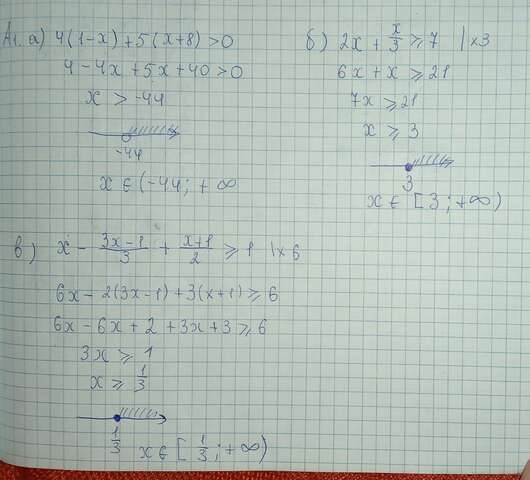 A1. а) 4(1-x)+5(x+8)>0
4-4x+5x+40>0
x > -44
-44
x ∈ (-44; +∞
б) 2x + x/3 ⩾ 7 | x3
6x + x ⩾ 21
7x ⩾ 21
x ⩾ 3
3
x ∈ [3; +∞)
в) x - (3x-1)/3 + (x+1)/2 ⩾ 1 | x6
6x - 2(3x-1)+3(x+1) ⩾ 6
6x - 6x + 2 + 3x + 3 ⩾ 6
3x ⩾ 1
x ⩾ 1/3
1/3
x ∈ [1/3; +∞)